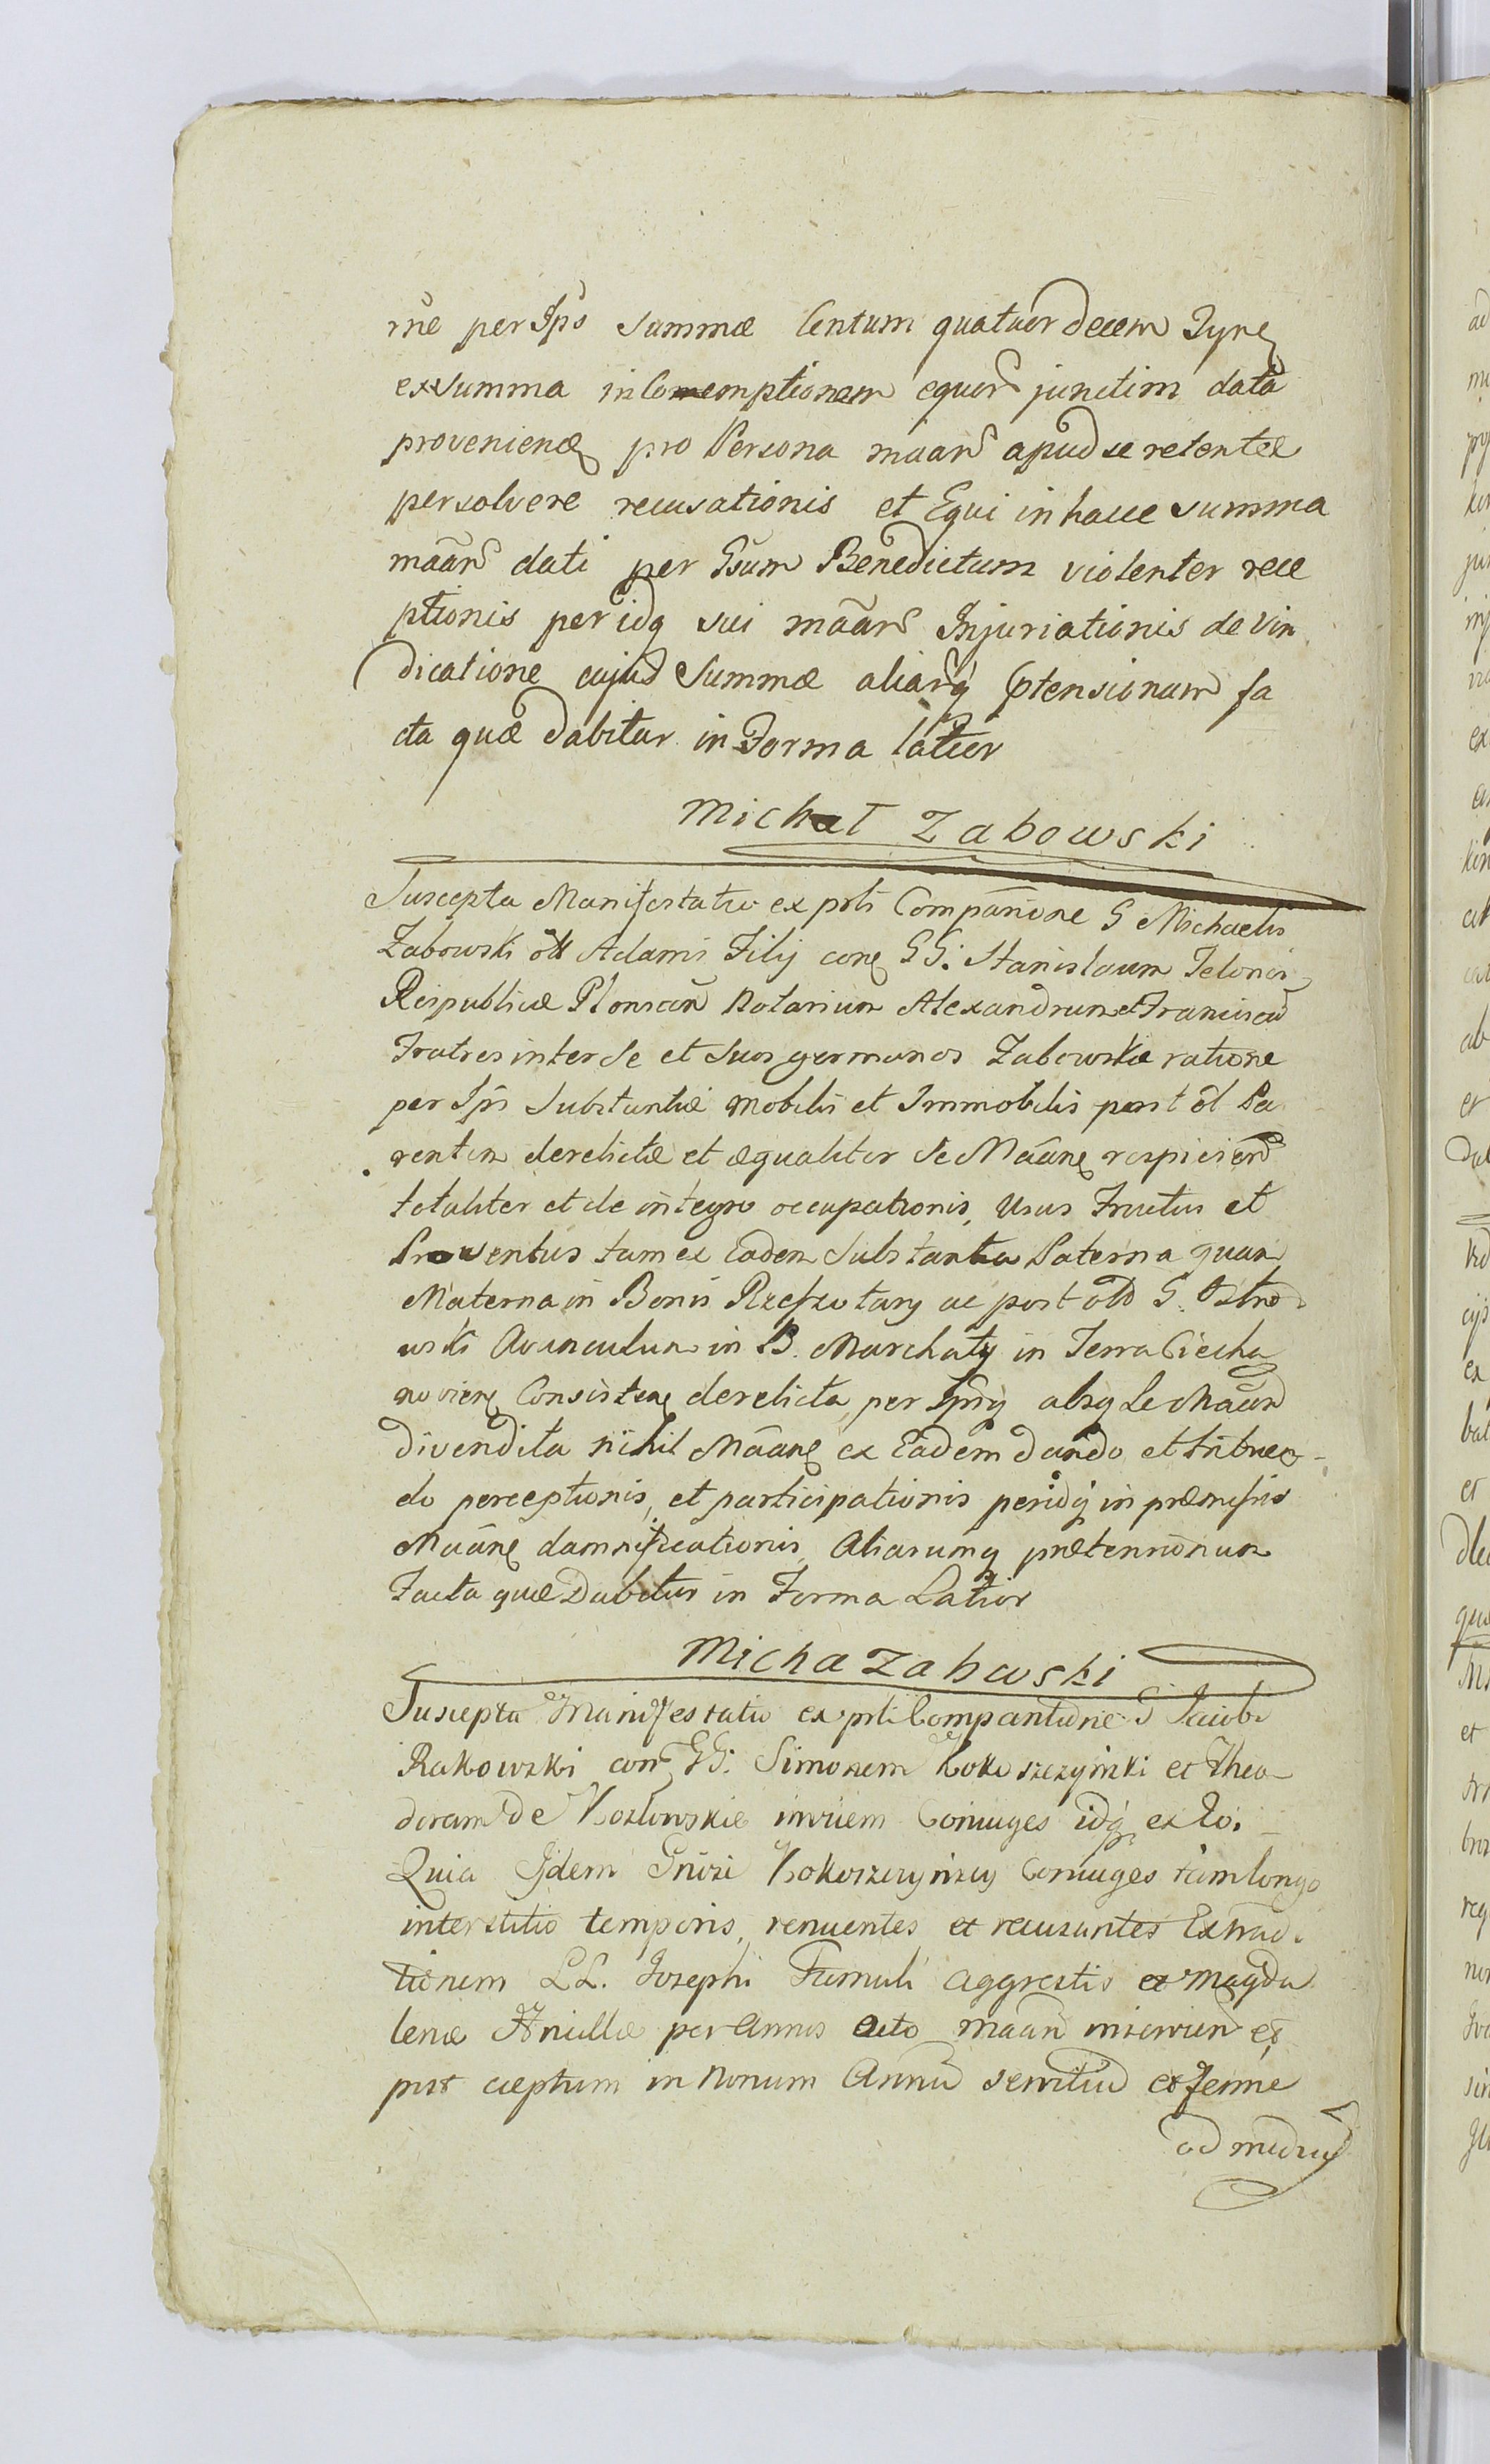 rne per Ips Summæ Centum quatuor decem Tynf
ex Summa in Comemptionem equor junctim data
provenienæ pro Persona maan apud se retentæ
persolvere recusationis et Equi in hacce summa
maan dati per Gsum Benedictum violenter rece
ptionis per idq sui maan Injuriationis de vin
dicatione cujus Summæ aliarq ptensionum fa
cta quæ dabitur in Forma latior
Michał Zabowski
Suscepta Manifestatio ex prti Companone G Michaelis
Zabowski olt Adami Filij conq GG. Stanislaum Telonei
Reipublicæ Plonscen Notarium Alexandrum et Franciscu
Fratres inter Se et Suos germanos Zabowskie ratione
per Ips Substantiæ Mobilis et Immobilis post ol Pa
rentem derelictæ et æqualiter Se Maane respicien
totaliter et de integro occupationis, Usus Fructus et
Proventus tam ex Eadem Substantia Paterna quam
Materna in Bonis Rzeszotary ac post old G. Ostro
wski Avunculum in B. Marchaty in Terra Ciecha
novienę Consistenę derelicta per Ipsq absq Se Maan
divendita nihil Maanę ex Eadem dando et tribuen
do perceptionis, et participationis peridq in præmissis
Maanę damnificationis, Aliarumq prætensionum
Facta quæ Dabitur in Forma Latior
Micha Zabowski
Suscepta Manifestatio ex prti Companitione G Jacobi
Rakowski con GG. Simonem Kokoszczynski et Theo
doram de Kozlowskie invicem Coniuges idq ex Eo.
Quia Ijdem Gnosi Kokoszczynscy Coniuges tam longo
interstitio temporis, renuentes et recusantes Extradi
tionem LL. Josephi Famuli aggrestis et Magda
lenæ Ancillæ per Annos Octo maan inservien et
post cæptum in Nonum Annu servitiu et ferme
ad mediu